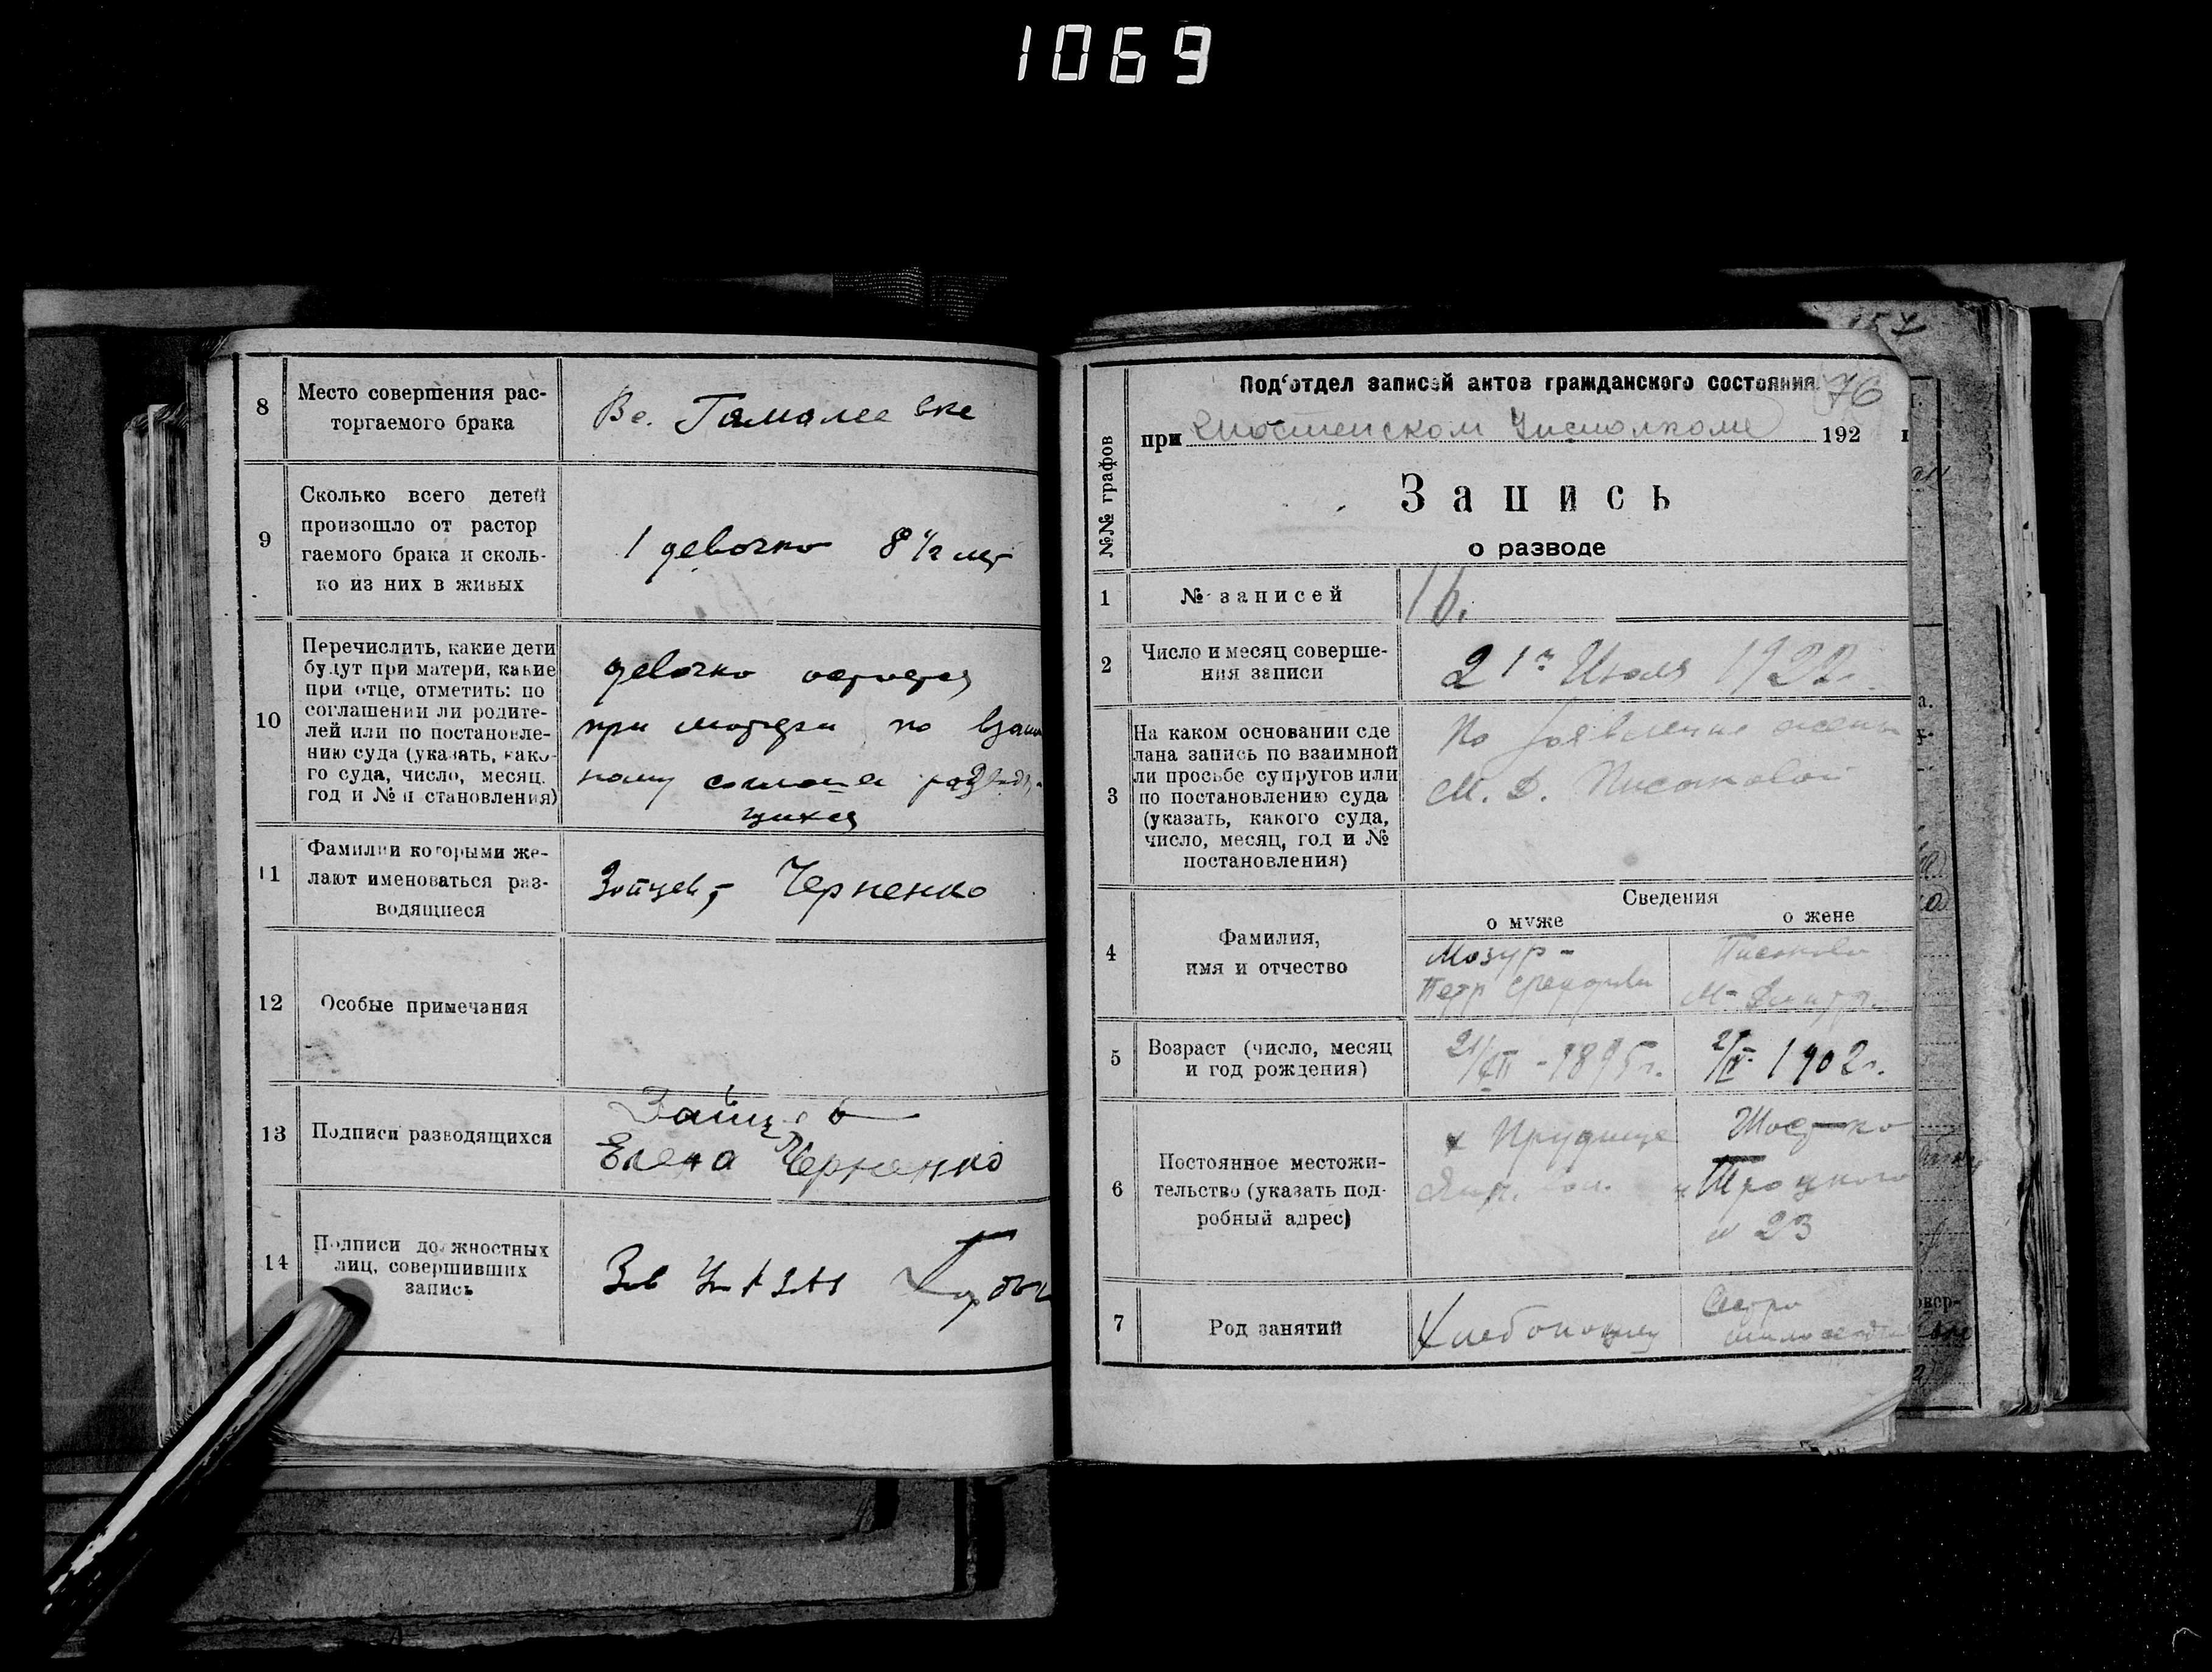 1069
8
Место совершения рас-
торгаемого брака
Гамалеевке
9
Сколько всего детей
произошло от растор
гаемого брака и сколь-
ко из них в живых
1 девочка 8 1/2 лет
10
Перечислить, какие дети
будут при матери, какие
при отце, отметить: по
соглашении ли родите-
лей или по постановле-
нию суда (указать, како-
го суда, число, месяц,
год и № п становления)
девочка остается
при матери по взаим
ному
11
Фамилии которыми же-
лают именоваться раз-
водящиеся
Зайцев, Черненко
12
Особые примечания
13
Подписи разводящихся
Зайцев
Елена Черненко
14
Подписи должностных
лиц, совершивших
запись
Зав
76
№№ графов
Под‘отдел записей актов гражданского состояния
при Исполкоме 192
Запись
о разводе
1
№ записей
16.
2
Число и месяц соверше-
ния записи
21го Июля 1922г.
3
На каком основании сде
лана запись по взаимной
ли просьбе супругов или
по постановлению суда
(указать, какого суда,
число, месяц, год и №
постановления)
По заявлению жены
М. Д. Писаковой
Сведения
о муже
о жене
4
Фамилия,
имя и отчество
Мазур-
Петр
Писакова
5
Возраст (число, месяц
и год рождения)
1895г.
1902г.
6
Постоянное местожи-
тельство (указать под-
робный адрес)
х Прудище
Шостка
Троцкого
№ 23
7
Род занятий
Хлебопашец
Сестра
милосердия